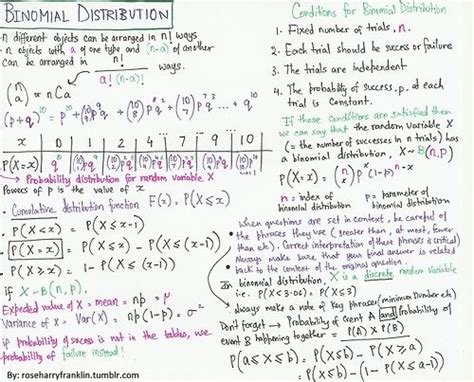 BINOMIAL DISTRIBUTION
- n different objects can be arranged in n! ways
- n objects with a of one type and (n-a) of another
can be arranged in n!/(a!(n-a)!) ways.
(n a) or nCa
(p+q)¹⁰ = p¹⁰ +
x 0 1 2 4 7 9 10
P(X=x)
Probability distribution for random variable X
Powers of p is the value of x
- Cumulative distribution function F(x) = P(X≤x)
• P(X<x) = P(X≤x-1)
• P(X=x) = P(X≤x) - P(X≤(x-1))
• P(X≥x) = 1-P(X≤(x-1))
if X~B(n,p)
Expected value of X = mean = np = μ
Variance of X = Var(X) = np(1-p) = σ²
if probability of success is not in the tables, use
probability of failure instead!
By: roseharryfranklin.tumblr.com
Conditions for Binomial Distribution
1. Fixed number of trials, n.
2. Each trial should be success or failure
3. The trials are independent
4. The probability of success, p, at each
trial is constant.
If these conditions are satisfied then
we can say that the random variable X
(= the number of successes in n trials) has
a binomial distribution, X~B(n,p)
P(X=x) = (n x) pˣ(1-p)ⁿ⁻ˣ
n = index of binomial distribution
p = parameter of binomial distribution
When questions are set in context, be careful of
the phrases they use (greater than, at most, fewer
than etc). Correct interpretation of these phrases is critical)
Always make sure that your final answer is related
back to the context of the original question.
In binomial distribution, X is a discrete random variable
i.e. P(X≤3.06) = P(X≤3)
always make a note of key phrases (minimum number etc)
Don't forget → Probability of event A and Probability of
event B happening together = P(A) × P(B)
P(a≤X≤b) = P(X≤b) - P(X≥a)
= P(X≤b) - (1-P(X≤a-1))